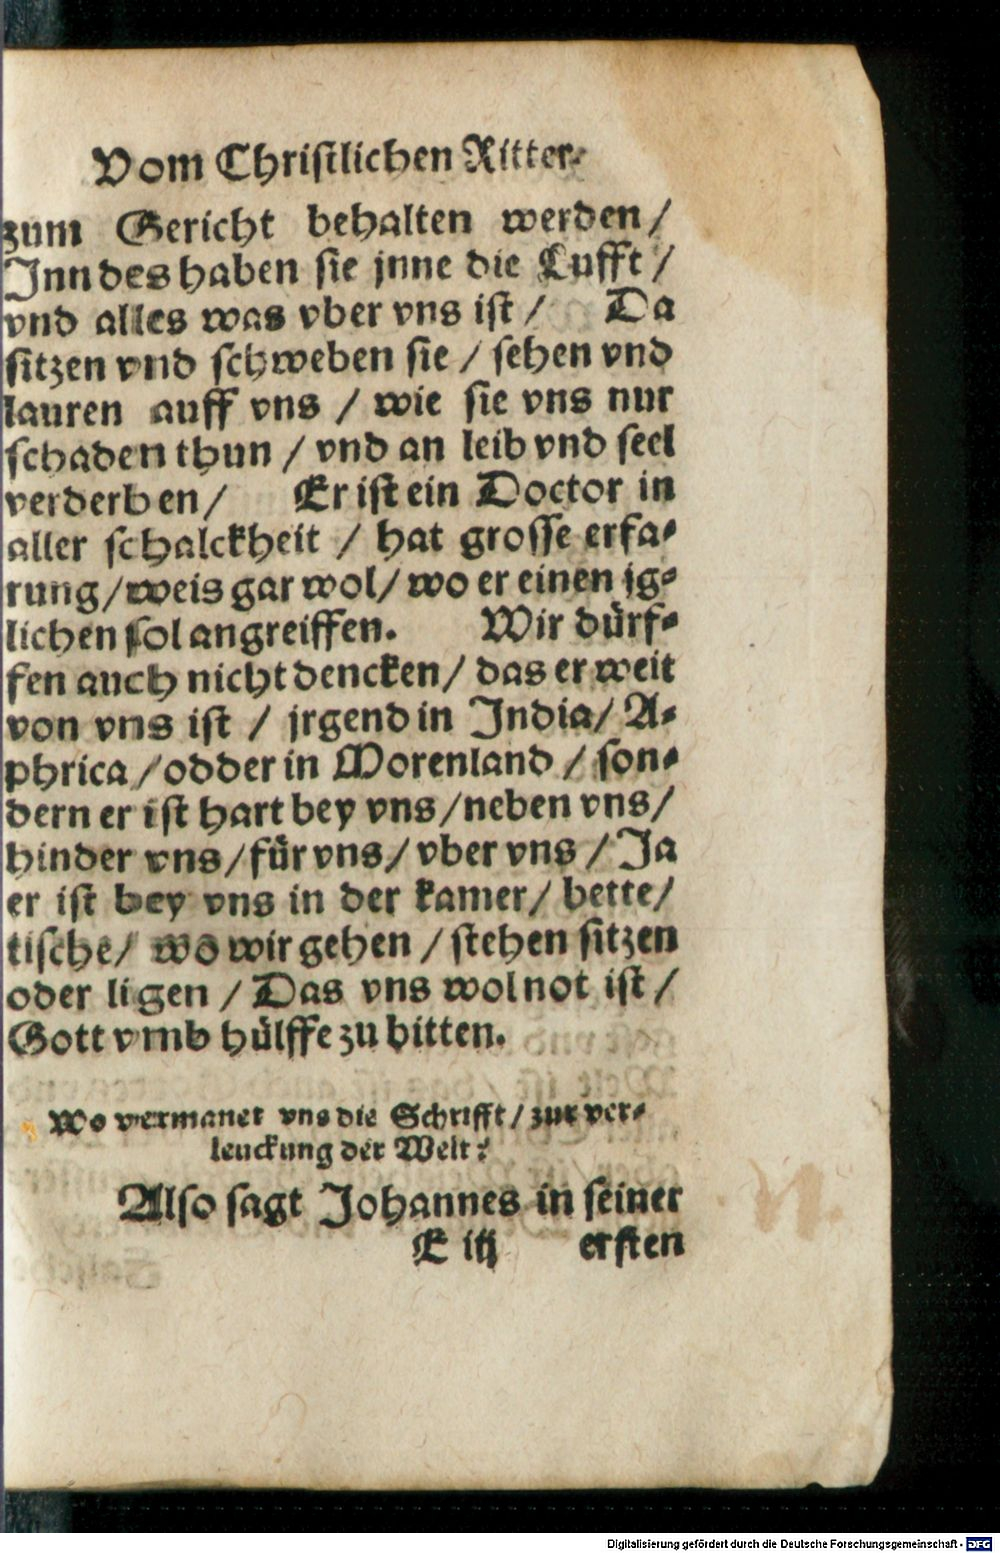 Vom Christlichen Ritter.
zum Gericht behalten werden/
Inn des haben sie jnne die Lufft /
vnd alles was vber vns ist / Da
sitzen vnd schweben sie / sehen vnd
lauren auff vns / wie sie vns nur
schaden thun / vnd an leib vnd seel
verderben / Er ist ein Doctor in
aller schalckheit / hat grosse erfa⸗
rung/weis gar wol/ wo er einen ig⸗
lichen sol angreiffen. Wir dürf⸗
fen auch nicht dencken/ das er weit
von vns ist / jrgend in India/ A⸗
phrica /odder in Morenland / son⸗
dern er ist hart bey vns /neben vns/
hinder vns/für vns/ vber vns / Ja
er ist bey vns in der kamer/ bette/
tische/ wo wir gehen / stehen sitzen
oder ligen / Das vns wol not ist /
Gott vmb hülffe zu bitten.
Wo vermanet vns die Schrifft / zur ver⸗
leuckung der Welt?
Also sagt Johannes in seiner
E iij ersten
Digitalisierung gefördert durch die Deutsche Forschungsgemeinschaft - DFG